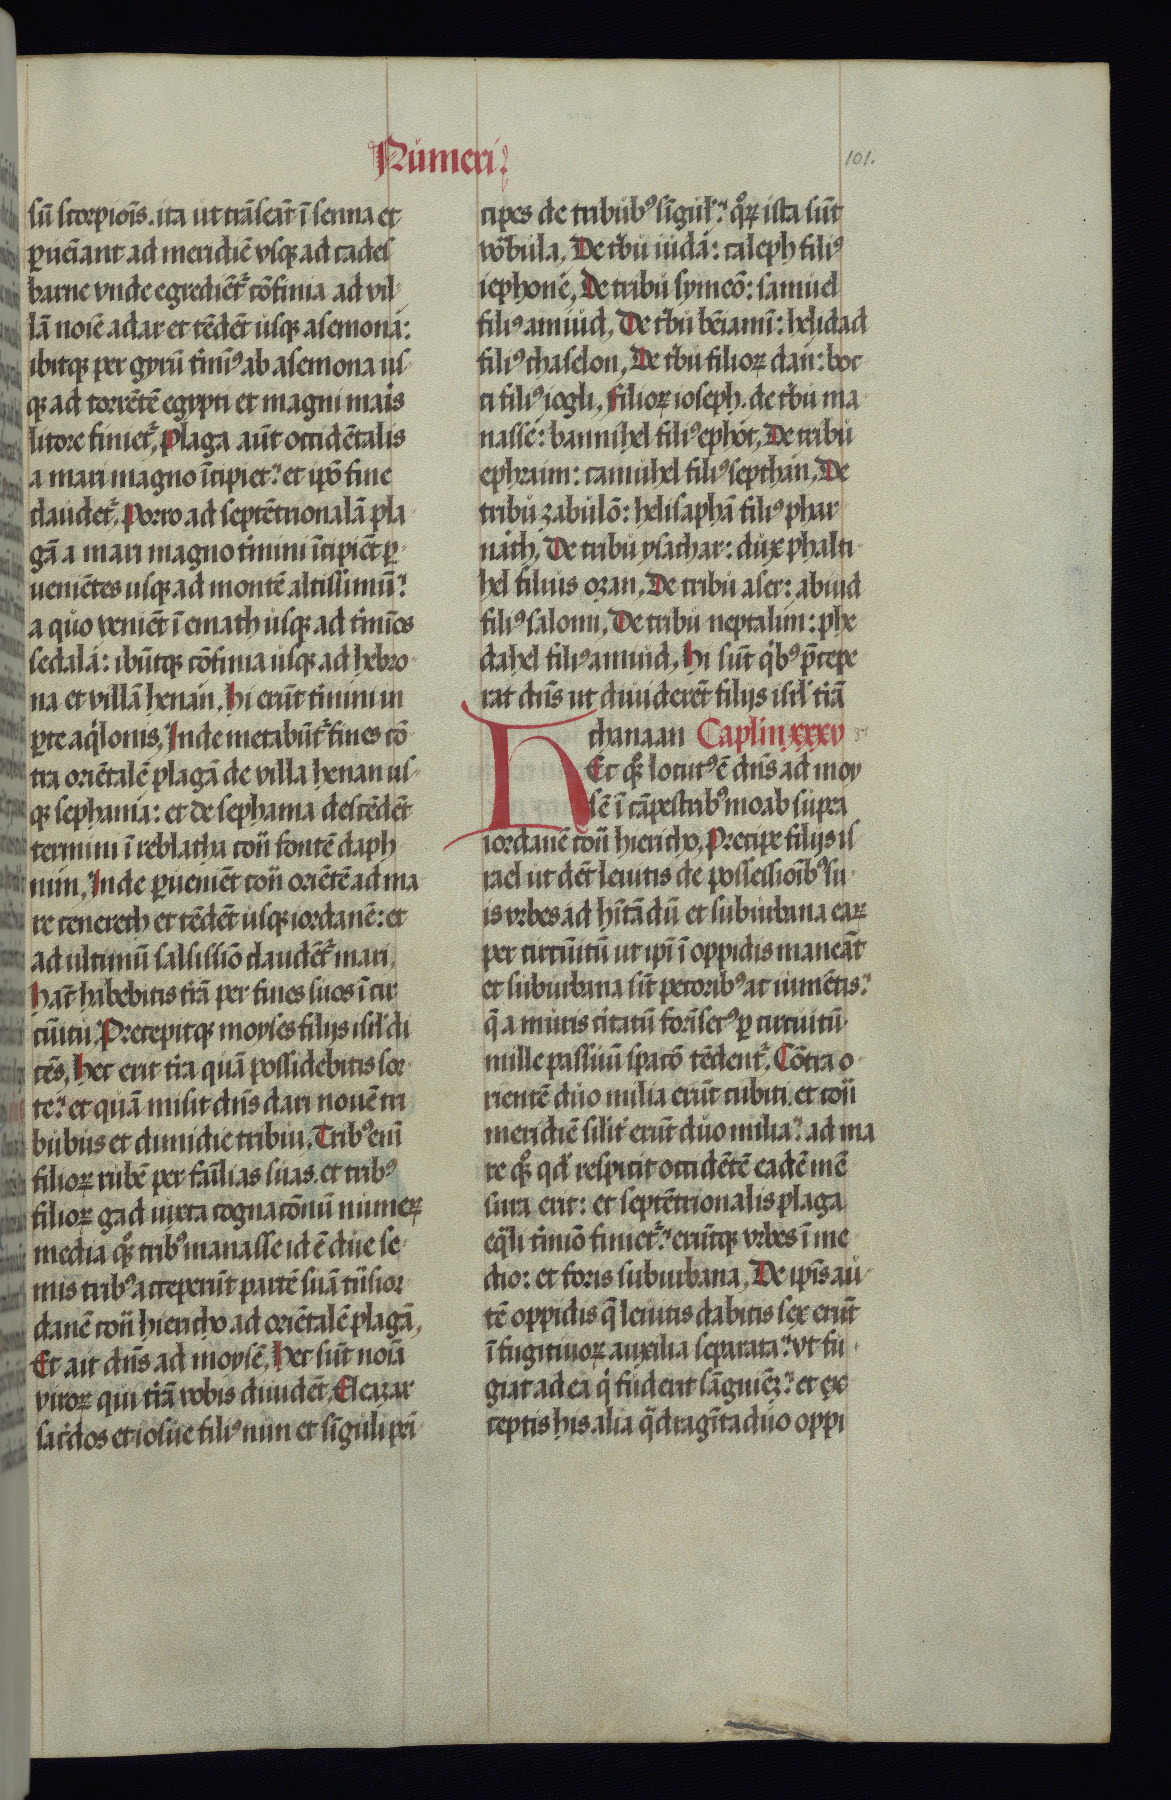 Numeri
101.
sū scorpiōis. ita ut trāseāt ī senna et
ꝑueīant ad meridiē vsqꝫ ad cades
barne vnde egrediēt᷑ cōfinia ad vil
lā noīe adar et tēdēt usqꝫ asemona:
ibitqꝫ per gyrū t̄minꝰ ab asemona us
qꝫ ad torrētē egypti et magni maīs
litore finiet᷑. Plaga aūt occidētalis
a mari magno īcipiet᷑. et ip̄o fine
claudet᷑. Porro ad septētrionalā pla
gā a mari magno t̄mini īcipiēt ꝑ
uenietes usqꝫ ad montē altissimū.
a quo veniēt ī emath usqꝫ ad t̄mīos
sedala: ibūtqꝫ cōfinia usqꝫ ad hebro
na et villā henan. Hi erūt t̄mini in
ꝑte aq̇lonis. Inde metabūt᷑ fines cō
tra oriētalē plagā de villa henan us
qꝫ sephama: et de sephama descēdēt
termini ī reblatha cont̄ fontē daph
nim. Inde ꝑueniēt cont̄ oriētē ad ma
re cenerech et tēdēt usqꝫ iordanē: et
ad ultimū salsissīo claudēt᷑ mari.
Hāc habebitis t̄rā per fines suos ī cir
cūitu. Precepitqꝫ moyses filijs isrl̄ di
cēs. Hec erit t̄ra quā possidebitis sor
te. et quā iusit dn̄s dari nouē tri
bubus et dimidie tribui. Tribꝰ enī
filioꝝ rubē per fāilias suas. et tribꝰ
filioꝝ gad iuxta cognacōnū numeꝝ
media qꝫ tribꝰ manasse id ē due se
mis tribꝰ acceperūt partē suā tūs ior
danē cont̄ hiericho ad oriētalē plagā.
Et ait dn̄s ad moysē. Hec sūt noīa
viroꝝ qui t̄rā vobis diuidēt. Eleazar
sac̄dos et iosue filiꝰ nun et sīguli pri
cipes de tribubꝰ sīgul᷑. qͦꝝ ista sūt
vocabula. De t̄bu iuda: caleph filiꝰ
iephone. De tribu symeō: samuel
filiꝰ amiud. De t̄bu beiamī: helidad
filiꝰ chaselon. De t̄bu filioꝝ dan: boc
ci filiꝰ iogli. Filioꝝ ioseph. de t̄bu ma
nasse: hannihel filiꝰ ephot. De tribu
ephraim: camuhel filiꝰ septhan. De
tribu zabulō: helisaphā filiꝰ phar
nath. De tribu ysachar: dux phalti
hel filius ozan. De tribu aser: abiud
filiꝰ salomi. De tribu neptalim: phe
dahel filiꝰ amiud. Hi sūt qͥbꝰ p̄cepe
rat dn̄s ut diuiderēt filijs isrl̄ t̄rā
chanaan Caplm xxxv
H Ec qꝫ locutꝰ ē dn̄s ad moy
sē ī cāpestribꝰ moab supra
iordanē cont̄ hiericho. Precipe filijs is
rael ut dēt leuitis de possessiōibꝰ su
is vrbes ad hītādū et suburbana eaꝝ
per circūitū ut ip̄i ī oppidis maneāt
et suburbana sīt pecoribꝰ ac iumētis.
q̄ a muris ciuitatū forīsecꝰ ꝑ circuitū
mille passuū spacō tēdent᷑. Cōtra o
rientē duo milia erūt cubiti. et cont̄
meridiē silit̄ erūt duo milia. ad ma
re qꝫ qd̄ respicit occidētē eadē mē
sura erit: et septētrionalis plaga
eq̄li t̄mīo finiet᷑. erūtqꝫ vrbes ī me
dio: et foris suburbana. De ip̄is au
tē oppidis q̄ leuitis dabitis sex erūt
ī fugitiuoꝝ auxilia separata. vt fu
giat ad ea qͥ fuderit sāguiēꝫ. et ex
ceptis his. alia q̄dragīta duo oppi